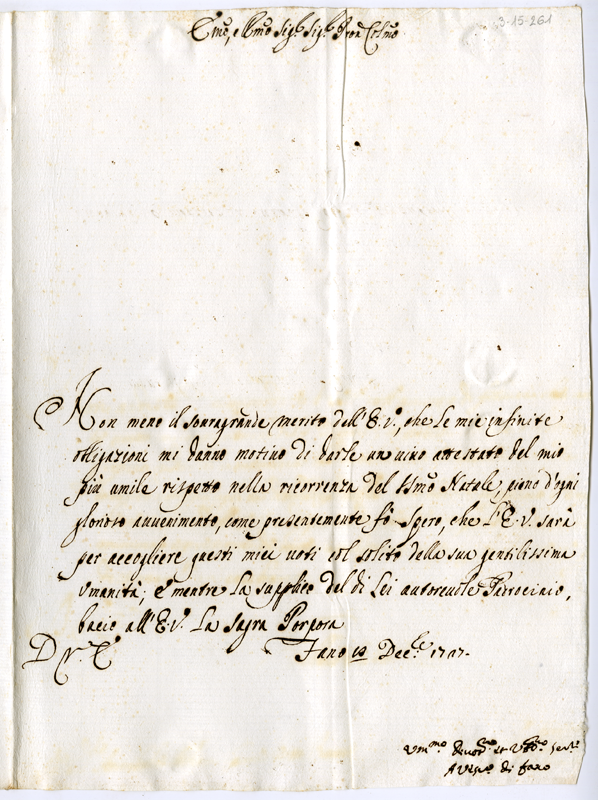 3-15-261
Emo, e Rmo Sigr Sigr Pron Colmo
Non meno il souragrande merito dell' E.V., che le mie infinite
obligazioni mi danno motiuo di darle un uiuo attestato del mio
più umile rispetto nella ricorrenza del Ssmo Natale, pieno d'ogni
glorioso auuenimento, come presentemente fò. Spero, che l'E.V. sarà
per accogliere questi miei uoti col solito della sua gentilissima
Vmanità; e mentre la supplico del di Lei autoreuole Patrocinio,
bacio all' E.V. La Sagra Porpora
Fano Decre 1717.
Vmmo diuotmo et Obbmo Serre
A Vesco di fano